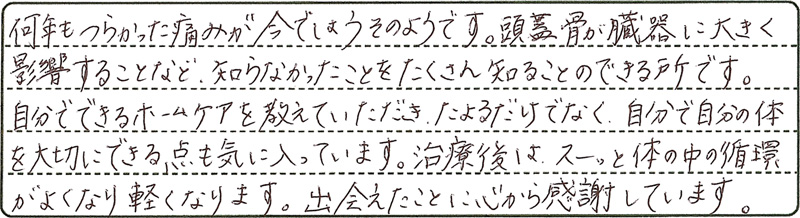 何年もつらかった痛みが今でしょうそのようです。頭蓋骨が臓器に大きく
影響することなど、知らなかったことをたくさん知ることのできる所です。
自分でできるホームケアを教えていただき、たよるだけでなく、自分で自分の体
を大切にできる点も気に入っています。治療後は、スーッと体の中の循環
がよくなり軽くなります。出会えたことに心から感謝しています。